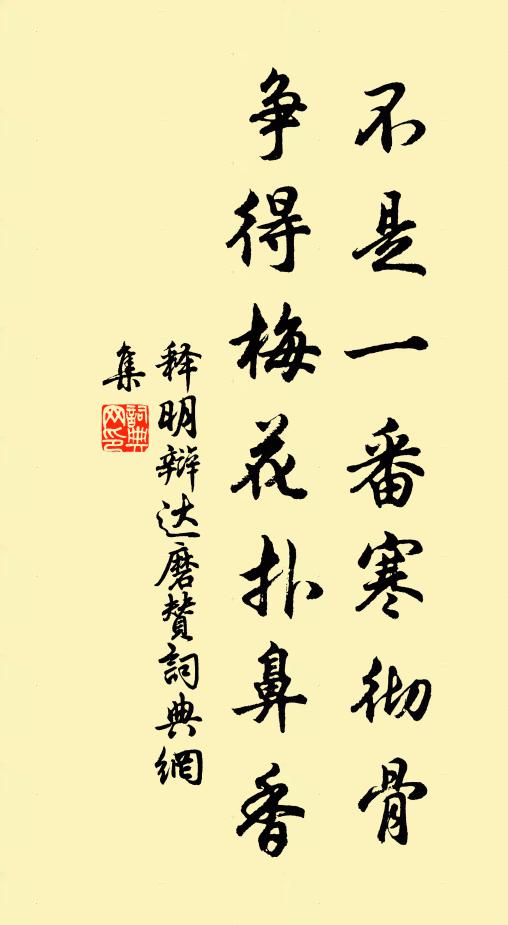 不是一番寒彻骨
争得梅花扑鼻香
释明辩达磨赞詞典網
集
詞典網印